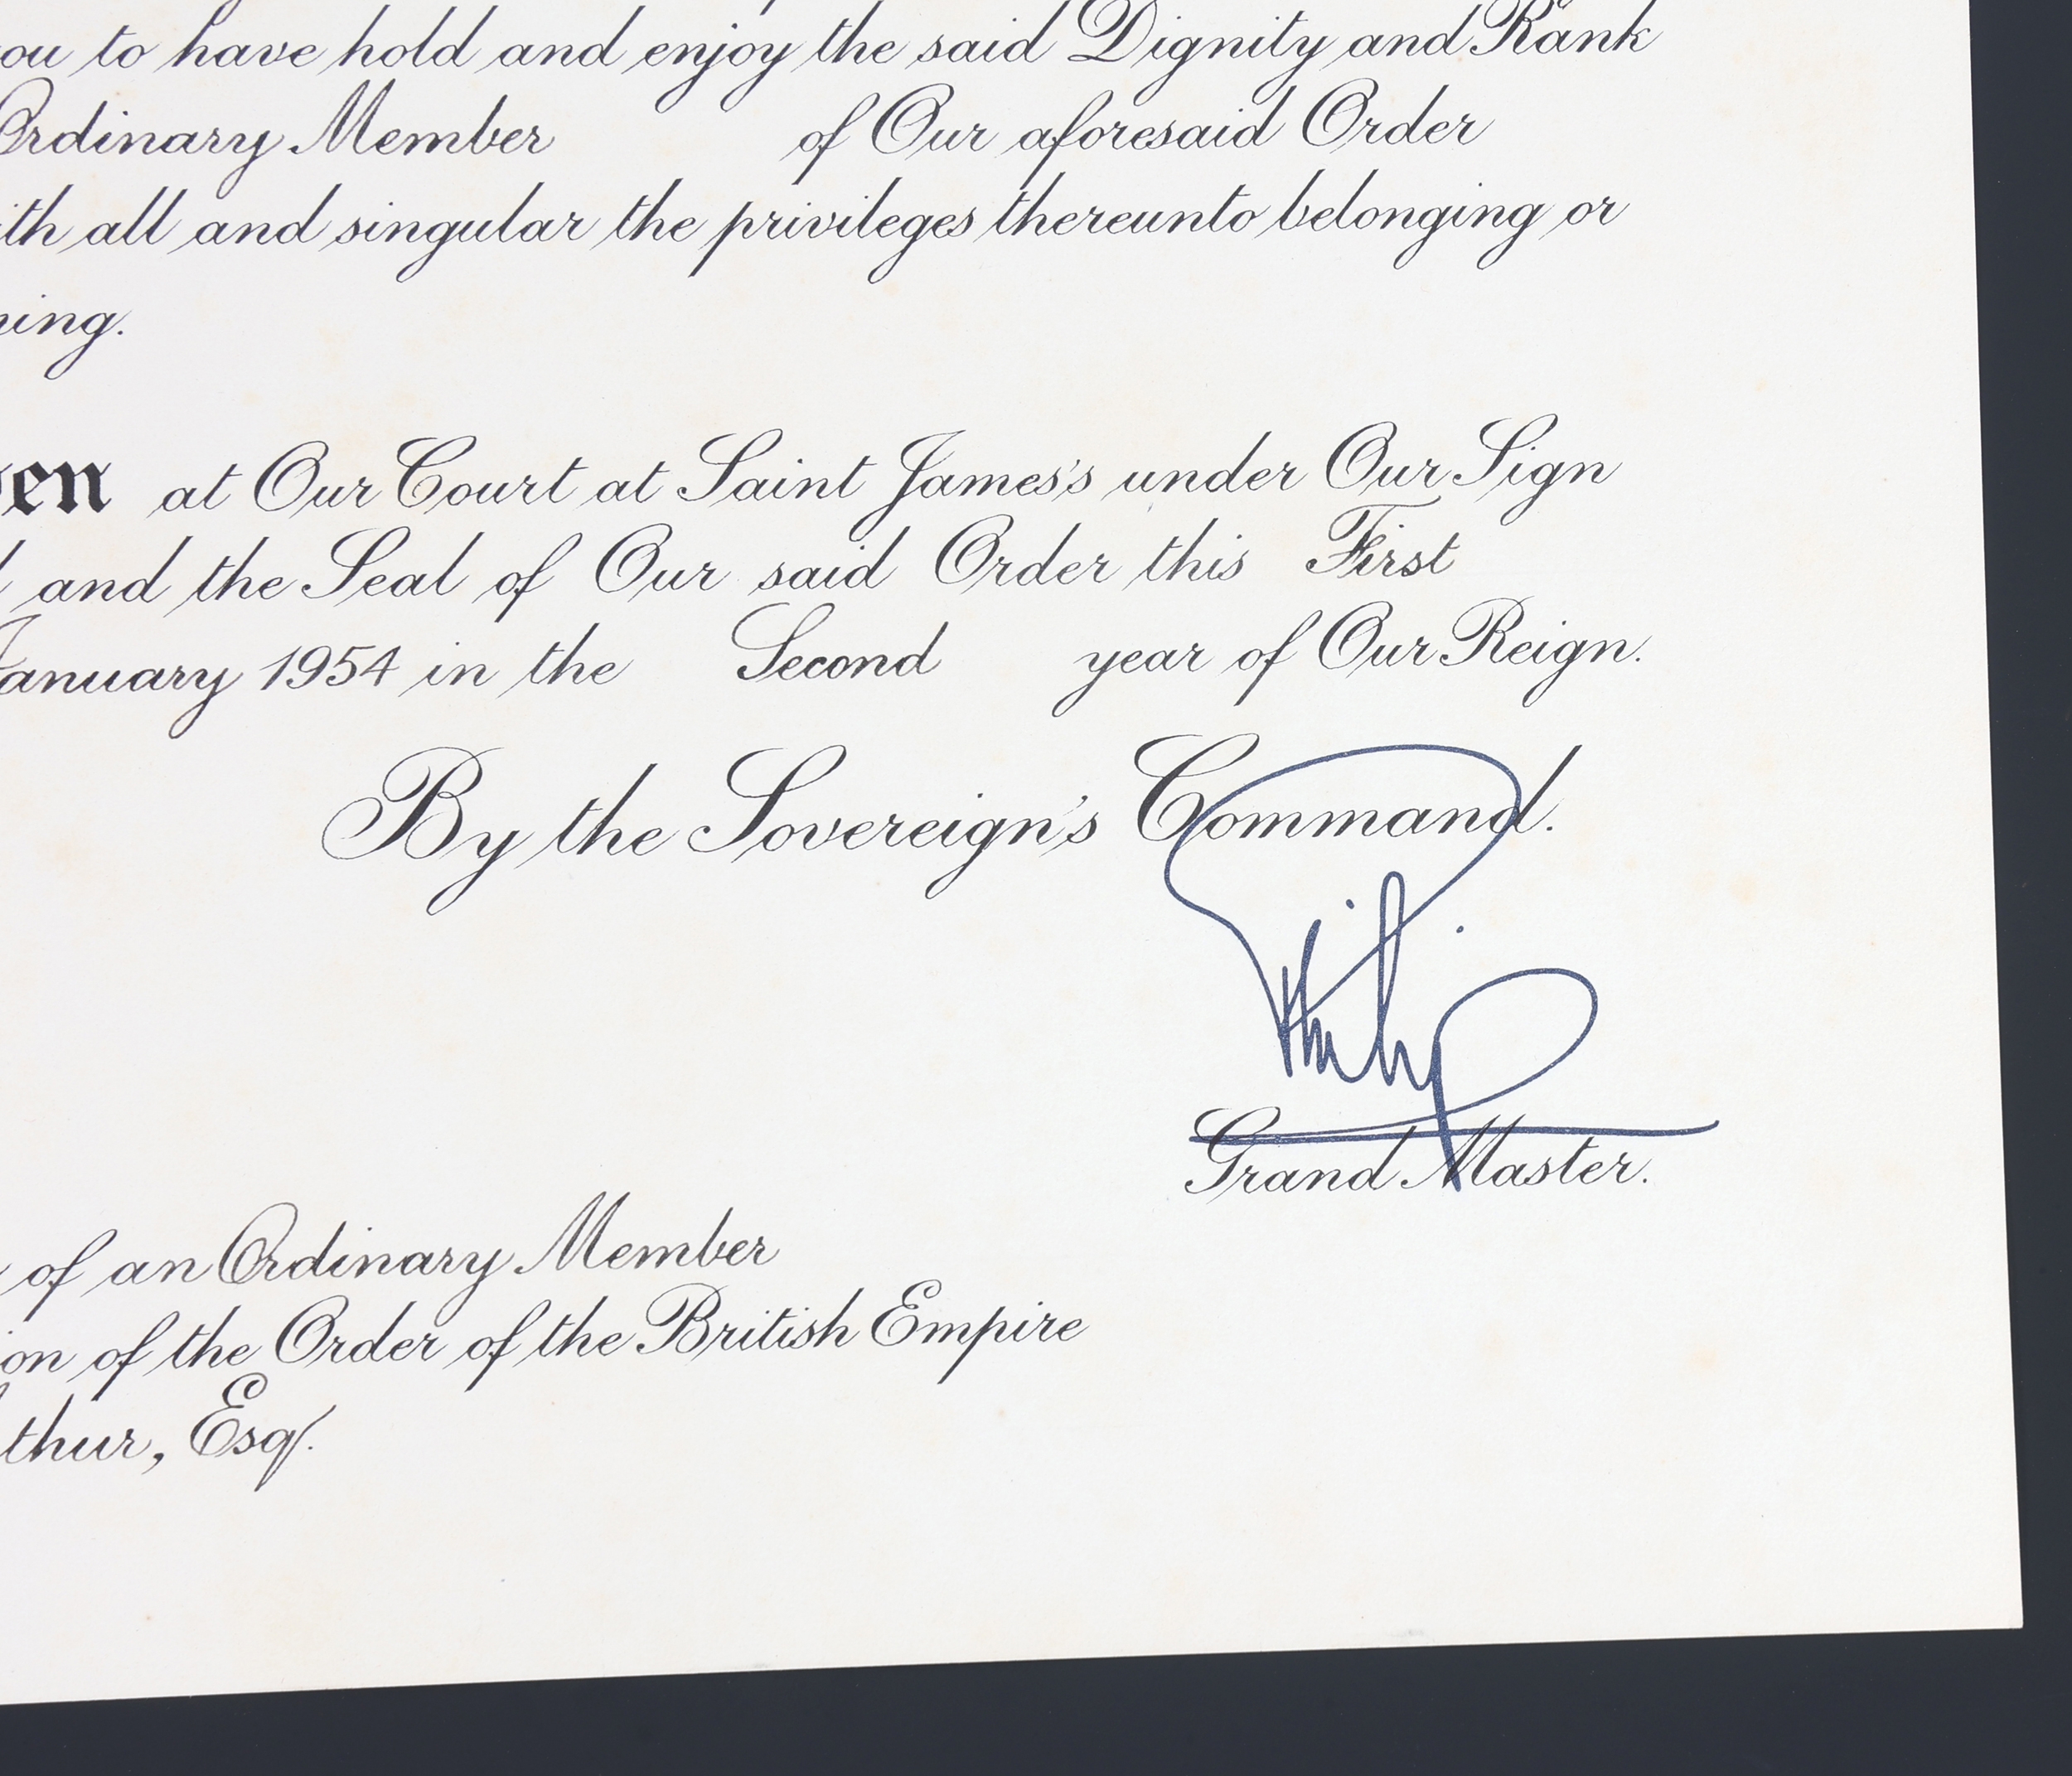 ou to have hold and enjoy the said Dignity and Rank
Ordinary Member of Our aforesaid Order
ith all and singular the privileges thereunto belonging or
ning.
en at Our Court at Saint James's under Our Sign
and the Seal of Our said Order this First
January 1954 in the Second year of Our Reign.
By the Sovereign's Command.
Philip
Grand Master.
of an Ordinary Member
on of the Order of the British Empire
thur, Esqr.